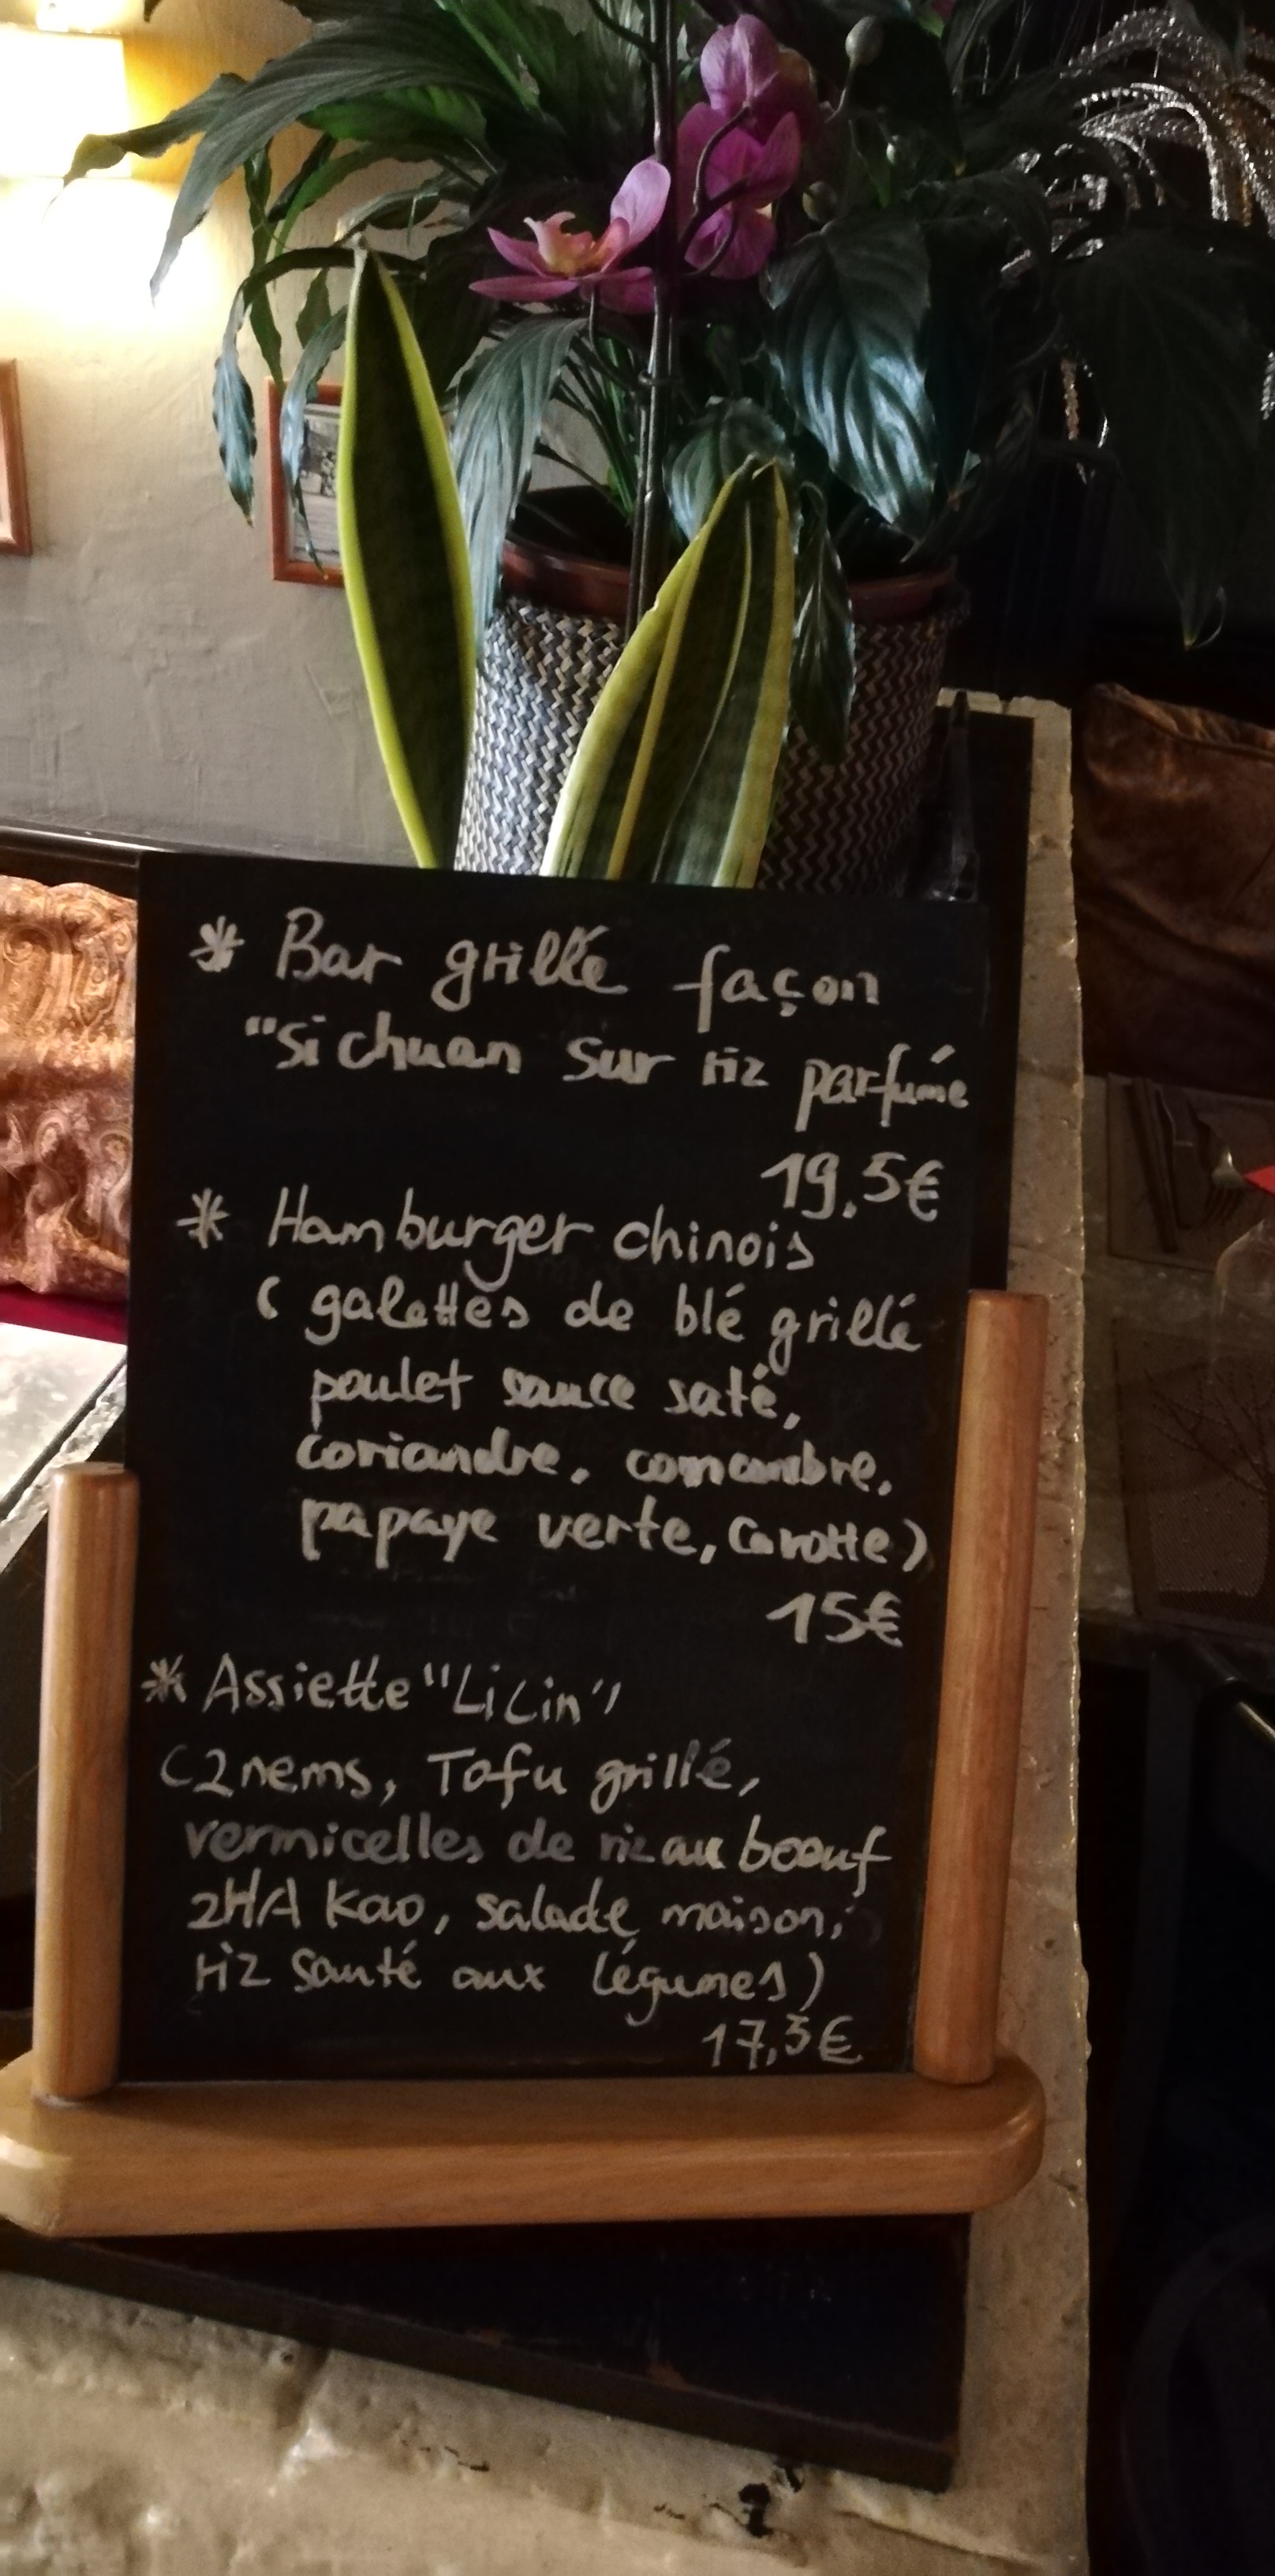 * Bar grillé façon
"Sichuan sur riz parfumé
19,5€
* Hamburger chinois
( galettes de blé grillé
poulet sauce saté,
coriandre, concombre,
papaye verte, carotte)
15€
* Assiette "LiLin"
(2 nems, Tofu grillé,
vermicelles de riz au boeuf
2 HA Kao, salade maison,
riz sauté aux légumes)
17,5€